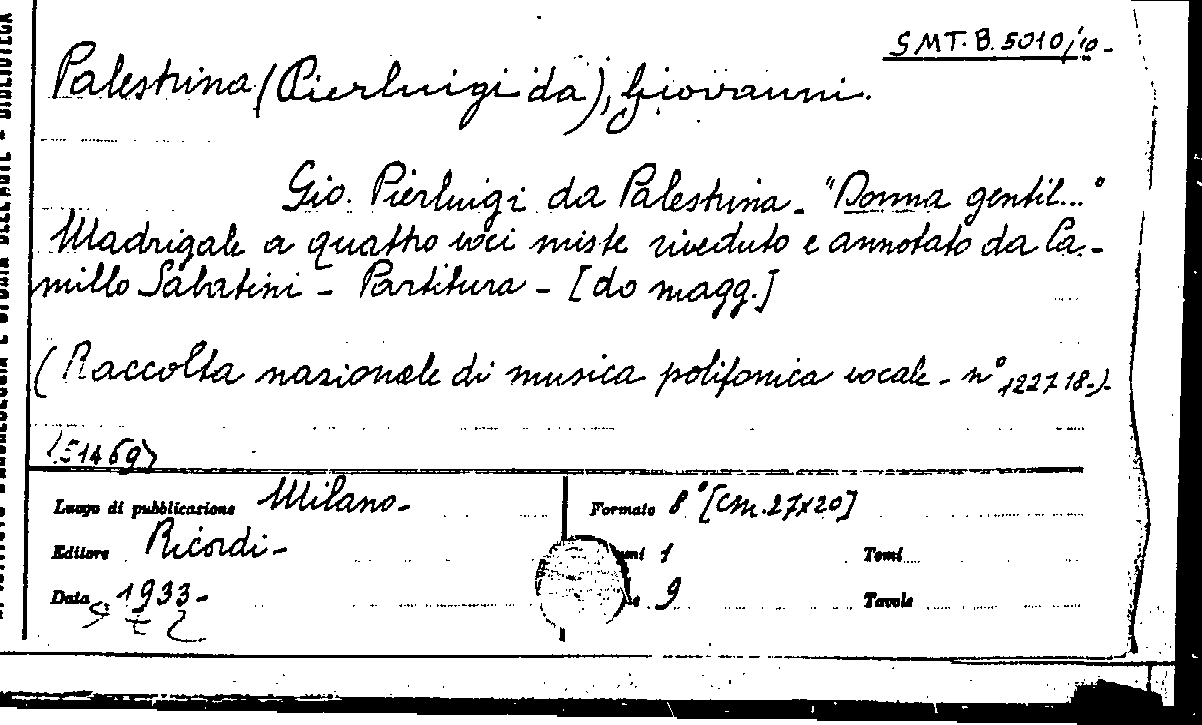 SMT. B. 5010/10-
Palestrina (Pierluigi da), Giovanni.
Gio. Pierluigi da Palestrina - "Donna gentil..."
Madrigale a quattro voci miste riveduto e annotato da Ca-
millo Sabatini - Partitura - [do magg.]
(Raccolta nazionale di musica polifonica vocale - n° 122718-)-
(51469)
Luogo di pubblicazione Milano-
Formato 8° [cm. 27x20]
Editore Ricordi-
1
Tomi
Data 1933-
9
Tavole